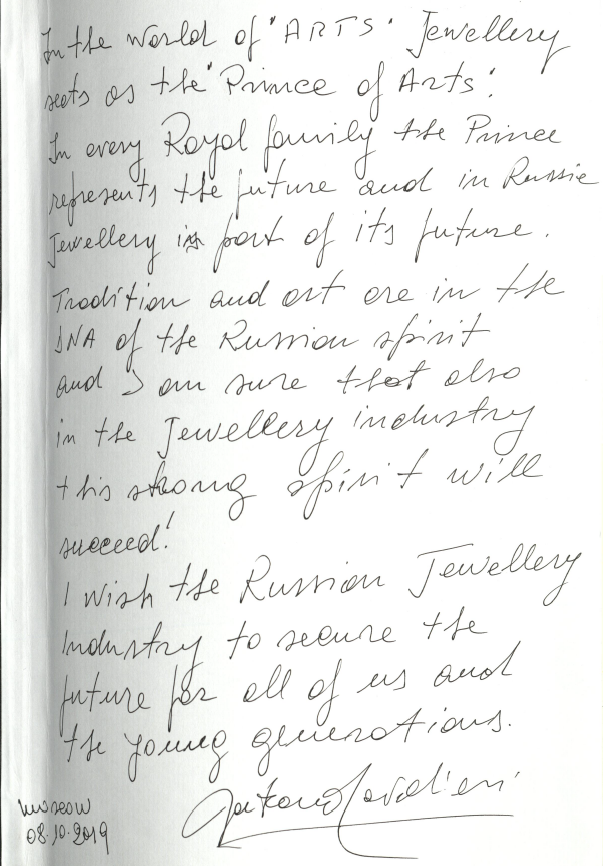 In the world of "ARTS" Jewellery
seats as the "Prince of Arts".
In every Royal family the Prince
represents the future and in Russie
Jewellery is part of its future.
Tradition and art are in the
DNA of the Russian spirit
and I am sure that also
in the Jewellery industry
this strong spirit will
succeed!
I wish the Russian Jewellery
Industry to secure the
future for all of us and
the young generations.
Moscow
08.10.2019